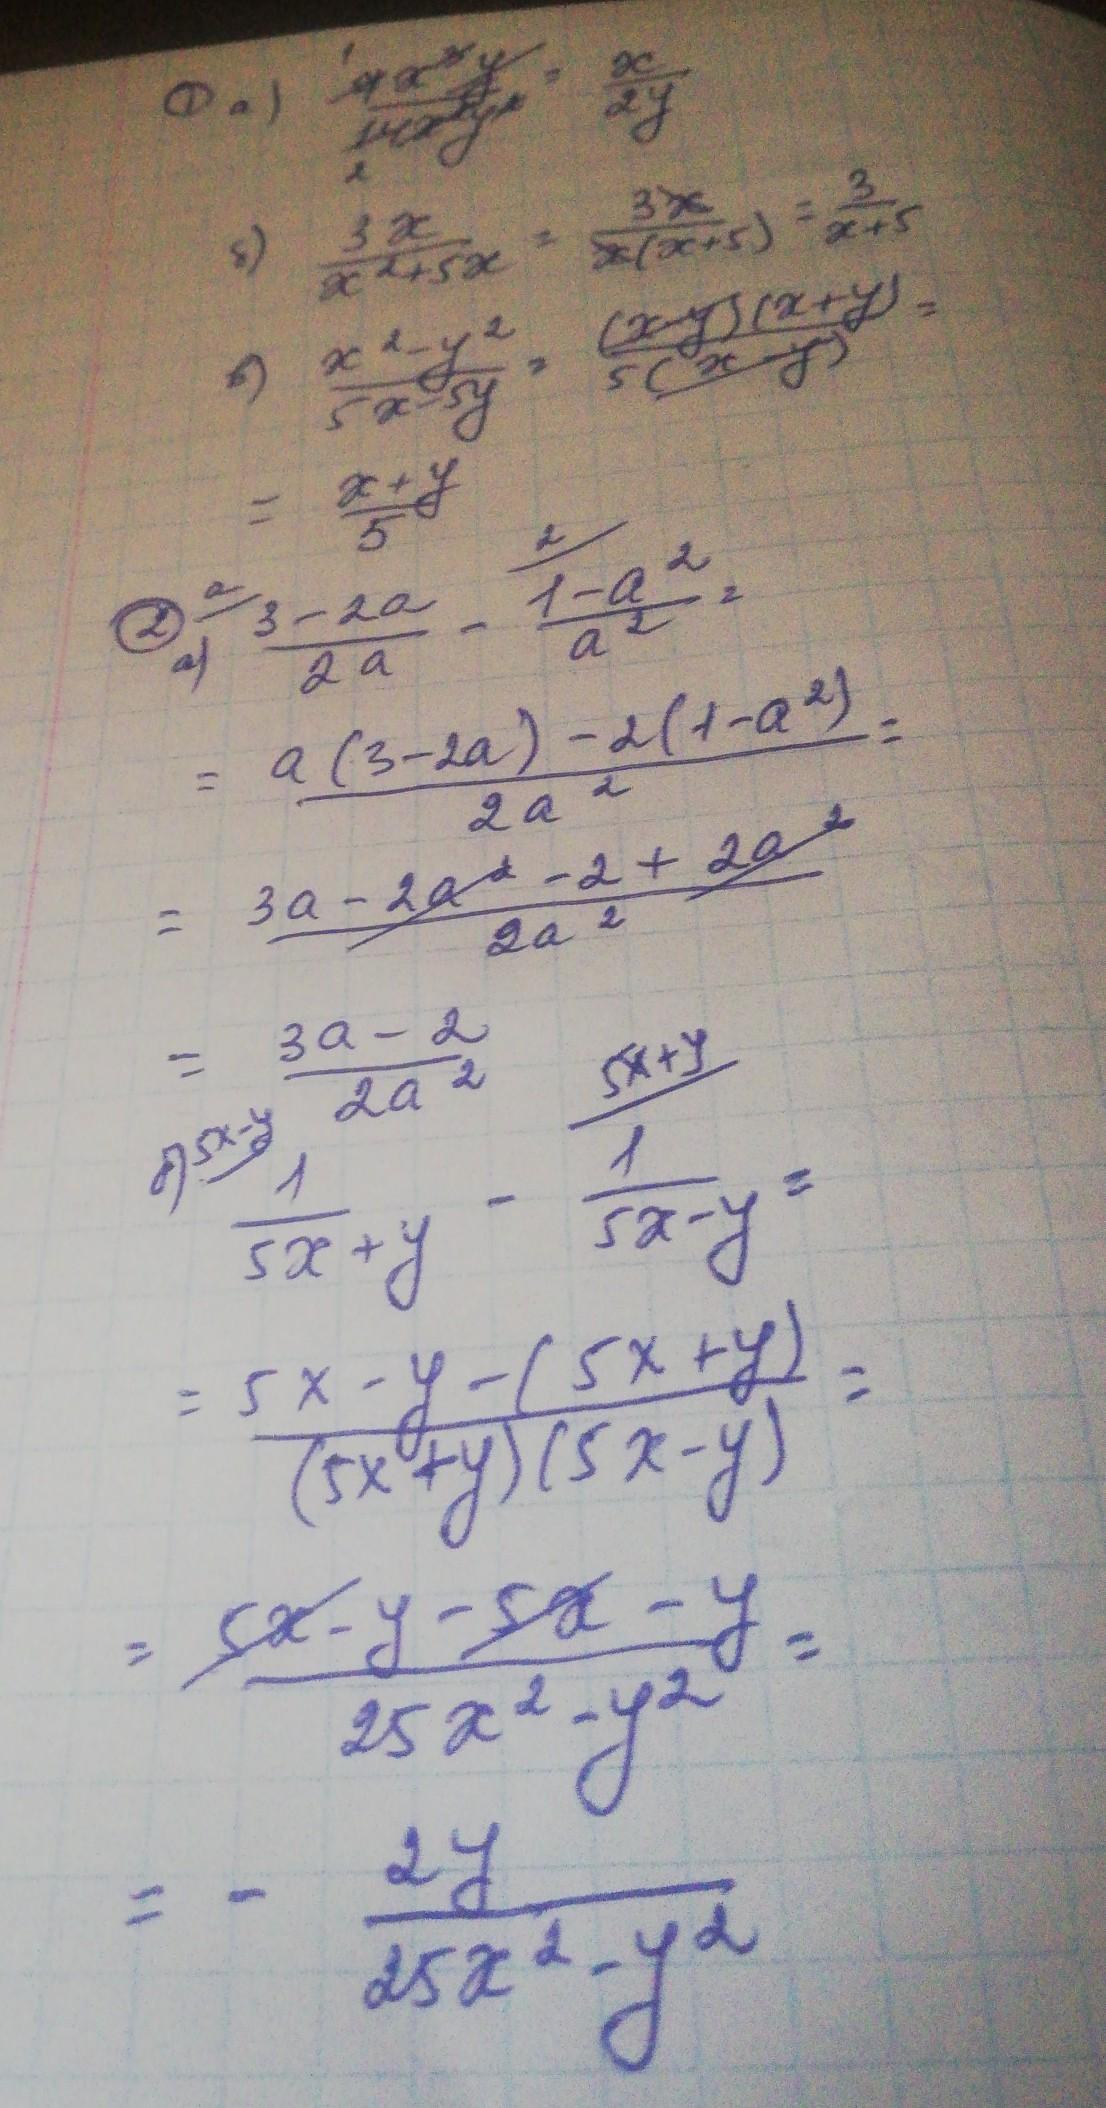 ① а) = x/2y
б) 3x/(x²+5x) = 3x/(x(x+5)) = 3/(x+5)
в) (x²-y²)/(5x-5y) = (x-y)(x+y)/(5(x-y)) =
= (x+y)/5
② а) a (3-2a)/(2a) - 2 (1-a²)/a² =
= (a(3-2a)-2(1-a²))/(2a²) =
= (3a-2a²-2+2a²)/(2a²)
= (3a-2)/(2a²)
б) 5x-y 1/(5x+y) - 5x+y 1/(5x-y) =
= (5x-y-(5x+y))/((5x+y)(5x-y)) =
= (5x-y-5x-y)/(25x²-y²) =
= - 2y/(25x²-y²)